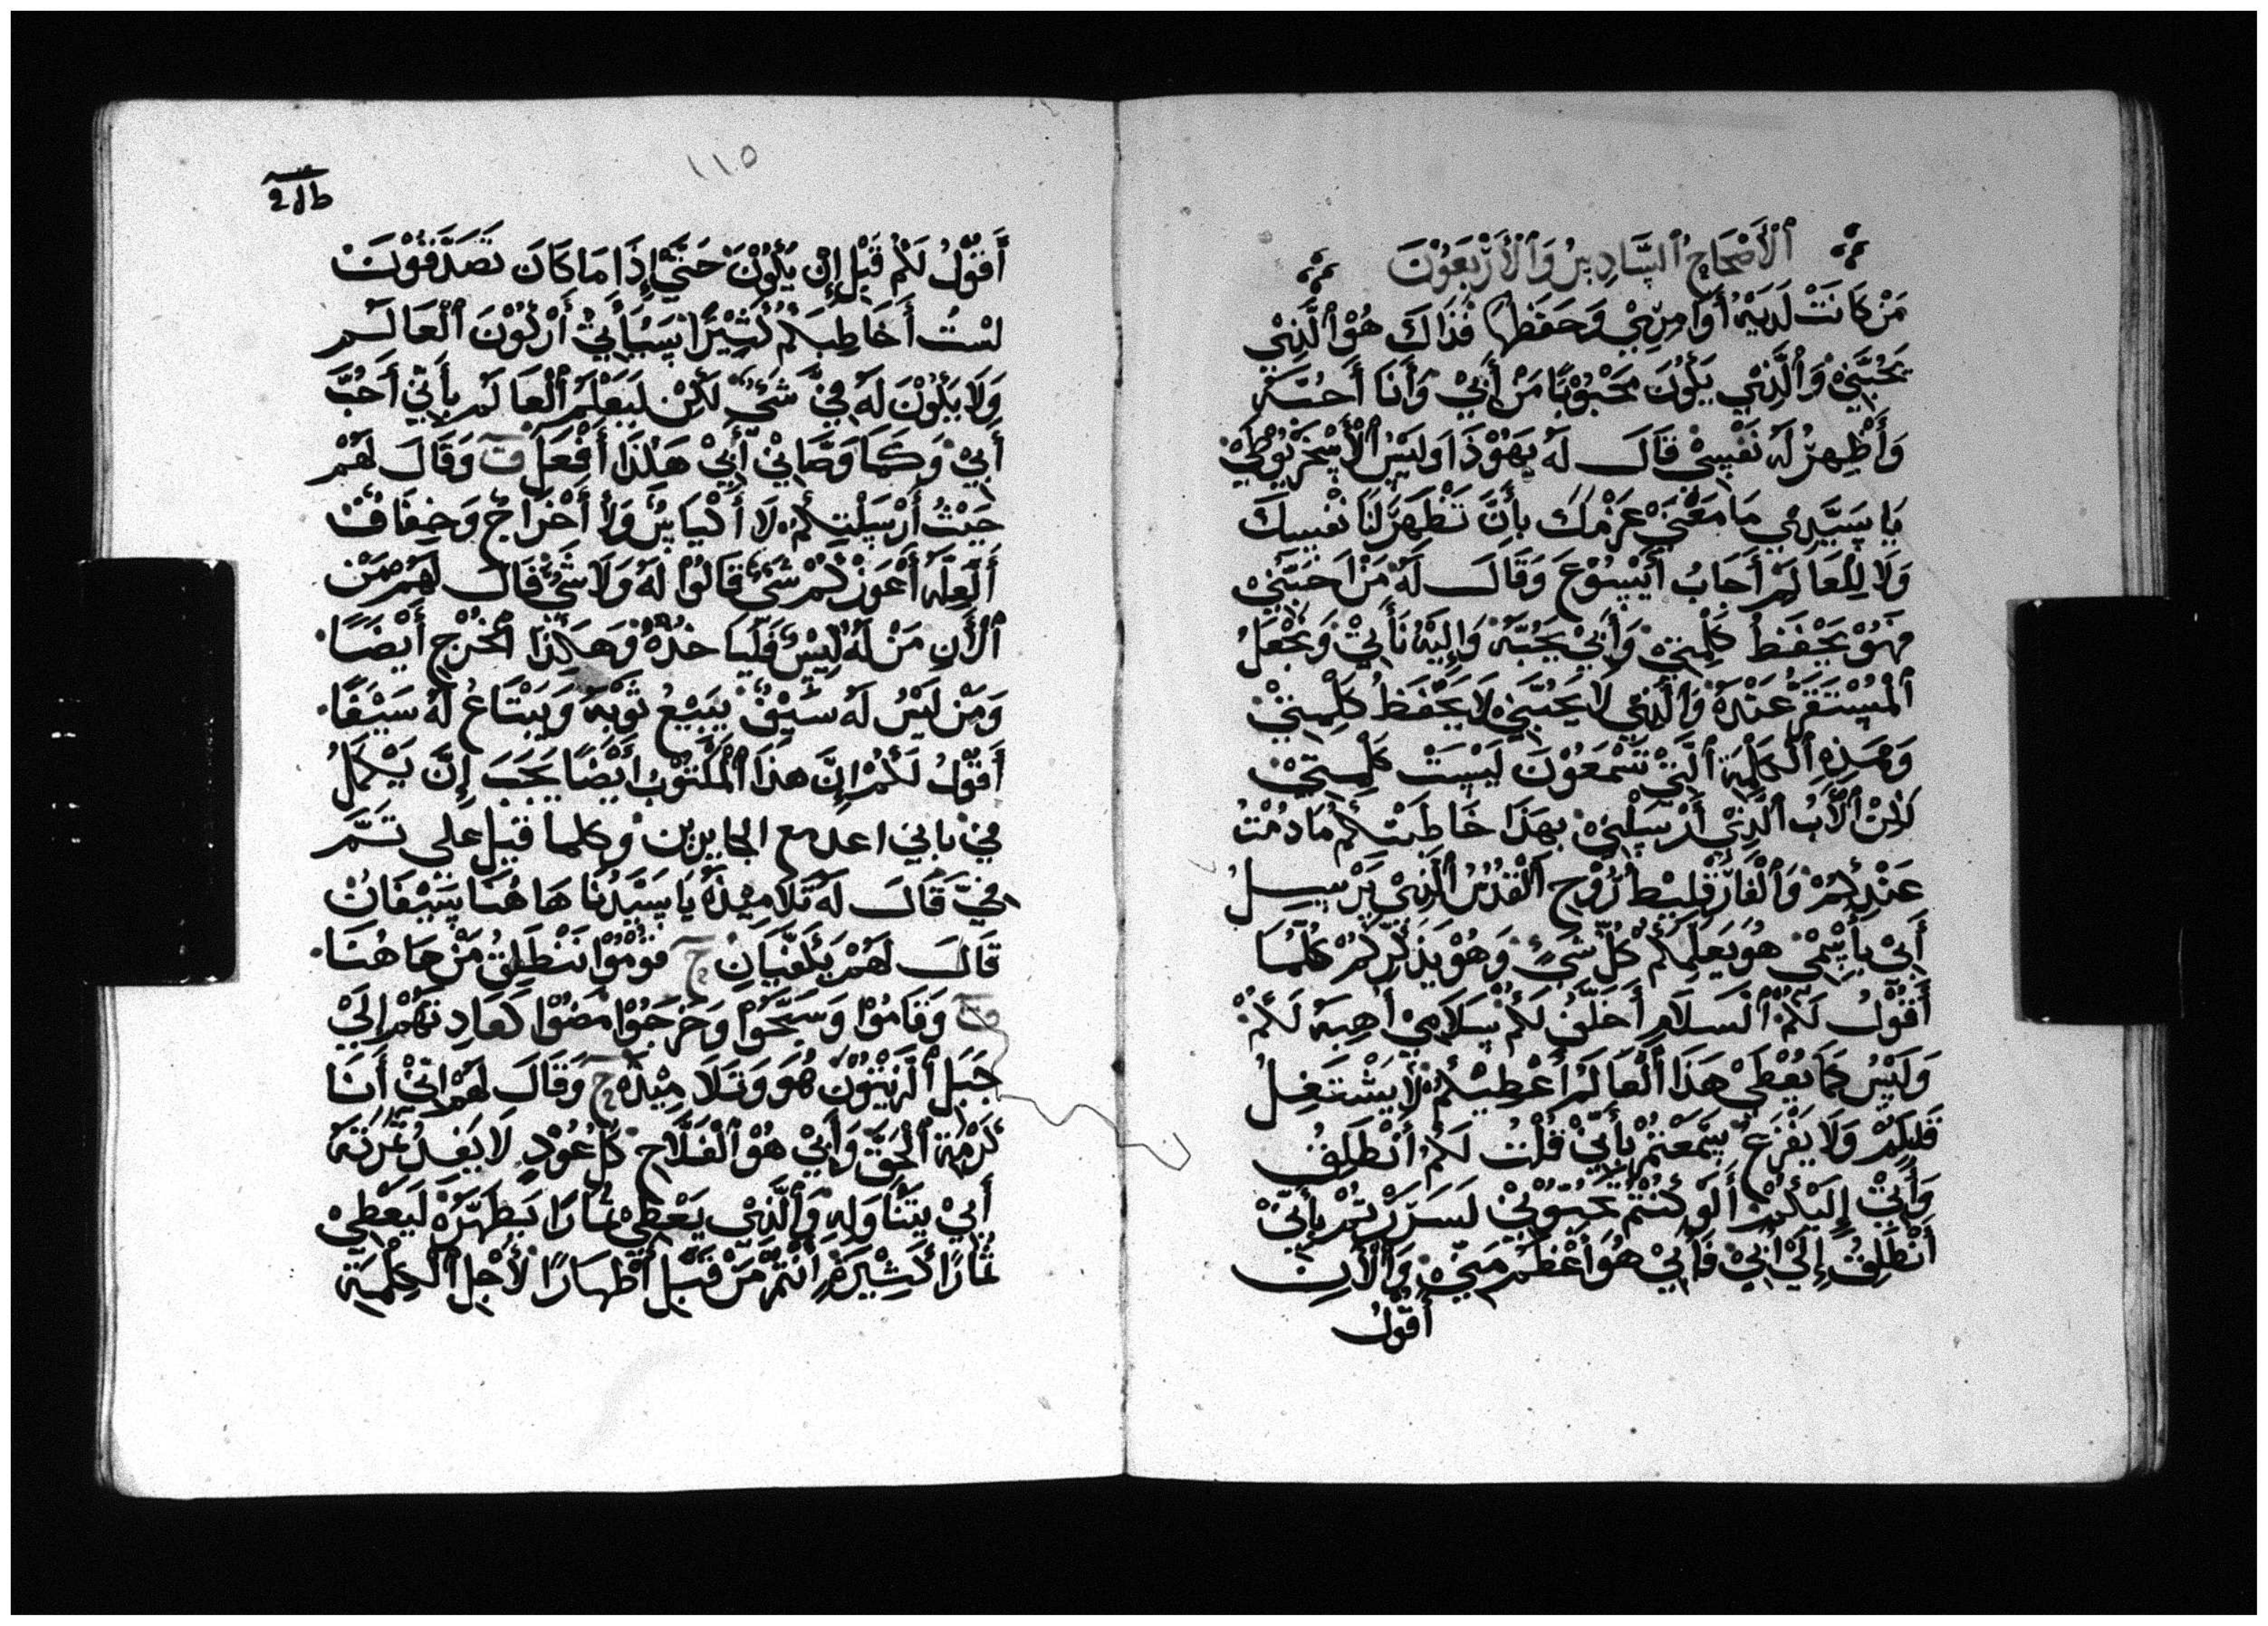 ٱلْأَصْحَاحُ ٱلسَّادِسُ وَٱلْأَرْبَعُوْنَ
مَنْ كَانَتْ لَدَيْهِ أَوَامِرِيْ وَحَفَظَهَا فَذَاكَ هُوَ ٱلَّذِيْ
يَحُبَّنِيْ وَٱلَّذِيْ يَكُونَ مَحْبُوْبًا مَنْ أَبِيْ وَأَنَا أَحُبَّهُ
وَأُظْهِرُ لَهُ نَفْسِيْ قَالَ لَهُ يَهُوْذَا وَلَيْسَ ٱلْأَسْخَرْيُوْطِيْ
يَا سَيِّدِيْ مَا مَعْنَيْ عَزْمِكَ بِأَنَّ تَظْهَرَ لَنَا نَفْسِكَ
وَلَا لِلْعَالَمْ أَجَابَ أَيْسُوْعَ وَقَالَ لَهُ مَنْ اَحَبَّنِيْ
فَهُوْ يَحْفَظُ كَلِمَتِيْ وَأَبِيْ يَحُبَّهُ وَإِلَيْهِ نَأْتِيْ وَنَجْعَلُ
ٱلْمُسْتَقَرَّ عَنْدَهُ وَٱلَّذِيْ لَا يَحُبَّنِيْ لَا يَحْفَظُ كَلِمَتِيْ
وَهَذِهِ ٱلْكَلِمَةِ ٱلَّتِيْ تَسْمَعُوْنَ لَيْسَتْ كَلِمَتِيْ
لَكِنْ ٱلْأَبُ ٱلَّذِيْ أَرْسَلْنِيْ بِهَذَا خَاطَبْتُكُمْ مَا دُمْتُ
عَنْدِكُمْ وَٱلْفَارَقْلِيْطُ رُوْحِ ٱلْقُدُسُ ٱلَّذِيْ يَرْسِلُ
أَبِيْ بِأَسْمِيْ هُوَ يَعَلِّمَكُمْ كُلَّ شَيْءٍ وَهُوْ يَذَكِّرِكُمْ كُلَّمَا
أَقُوْلُ لَكُمْ ٱلْسَلَامِ أَخَلِّفُ لَكُمْ سَلَامِيْ أَهِبَهُ لَكُمْ
وَلَيْسَ كَمَا يُعْطَيْ هَذَا ٱلْعَالَمْ أَعْطِيْكُمْ لَا يَشْتَغِلُ
قَلْبِكُمْ وَلَا يَفْزَعُ سَمَعْتُمْ بِأَنِّيْ قُلْتُ لَكُمْ أَنْطَلِقُ
وَأَتِيْ إِلَيْكُمْ أَلَوْ كُنْتُمْ تَحُبُوْنِيْ لَسَرَرْتُمْ بِأَنِّيْ
أَنْطَلِقُ إِلَيْ أَبِيْ فَأَبِيْ هُوَ أَعْظَمْ مَنِّيْ وَٱلْأَنِ
أَقُوْلُ
١١٥
أَقُوْلُ لَكُمْ قَبْلَ إِنْ يَكُوْنَ حَتَّيْ إِذَا مَا كَانَ تَصَدَّقُوْنَ
لَسْتُ أَخَاطِبَكُمْ كَثِيْرًا سَيَأْتِيْ أَرْكُوْنَ ٱلْعَالَمْ
وَلَا يَكُوْنَ لَهُ فِيَّ شَيْءٌ لَكِنْ لَيَعْلَمُ ٱلْعَالَمْ بِأَنِّيْ أَحُبَّ
أَبِيْ وَكَمَا وَصَّانِيْ أَبِيْ هَكَذَا أَفْعَلْ ق وَقَالَ لَهُمْ
حَيْثُ أَرْسَلْتِكُمْ لَا أَكْيَاسٌ وَلَا أَخْرَاجٌ وَخِفَافٌ
أَلَعِلَّهُ أَعْوَزْكُمْ شَيْءٌ قَالُوْا لَهُ وَلَا شَيْءٌ قَالَ لَهُمْ مَنْ
ٱلْأَنِ مَنْ لَهُ كِيْسٌ فَلْيَاخذُهُ وَهَكَذَا ٱلْخُرْجِ أَيْضًا
وَمَنْ لَيْسَ لَهُ سَيْفٌ يَبِيْعُ ثَوْبَهُ وَيَبْتَاعُ لَهُ سَيْفًا
أَقُوْلُ لَكُمْ إِنَّ هَذَا ٱلْمَكْتُوْبُ أَيْضًا يَجَبَ إِنَّ يَكْمَلُ
فِيْ بانِيْ اعد مع الجايرين وكلما قيل علي تَتَمَّ
فِيَّ قَالَ لَهُ تَلَامِيْذَهُ يَا سَيِّدُنَا هَا هُنَا سَيْفَانْ
قَالَ لَهُمْ يَكَفِّيَانِ ح قُوْمُوْا نَنْطَلِقُ مَنْ هَا هُنَا
وَقَامُوْا وَسَبَّحُوْا وَخَرَجُوْا مَضُوْا كَعَادِتَهُمْ إِلَيْ
جَبَلِ ٱلْزَيْتُوْنَ هُوَ وَتَلَامِيْذَهُ ح وَقَالَ لَهُمْ إِنِّيْ أَنَا
كَرْمَةِ ٱلْحَقَّ وَأَبِيْ هُوْ ٱلْفَلَّاحَ كُلَّ عُوْدٍ لَا يَفِدُ ثَمَرَتَهُ
أَبِيْ يَتَنَاوَلِهِ وَٱلَّذِيْ يَعْطِيْ ثِمَارًا يَطَهِّرَهُ لَيَعْطِيْ
ثُمَارًا كَثِيْرَةٍ أَنْتُمْ مَنْ قَبْلِ أَطْهَارًا لَأَجْلِ ٱلْكِلْمَةِ